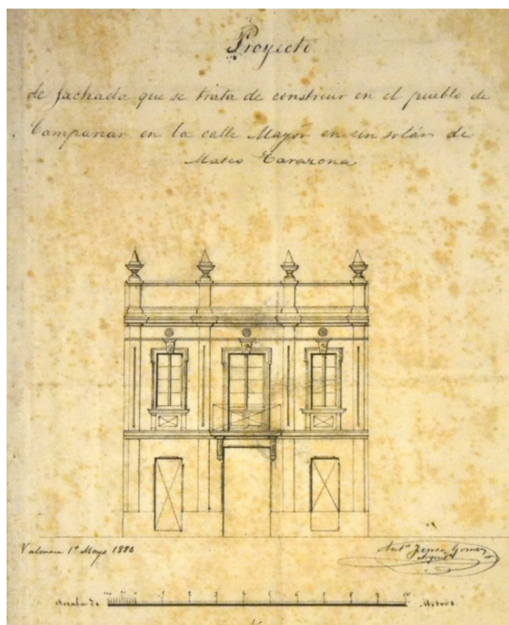 Proyecto
de fachada que se trata de construir en el pueblo de
Campanar en la calle Mayor en un solar de
Mateo Tarazona
Valencia 1º Mayo 1886
Antº
Gomez
Escala de
1 2 3 4 5 6 7 8 9 10
Metros